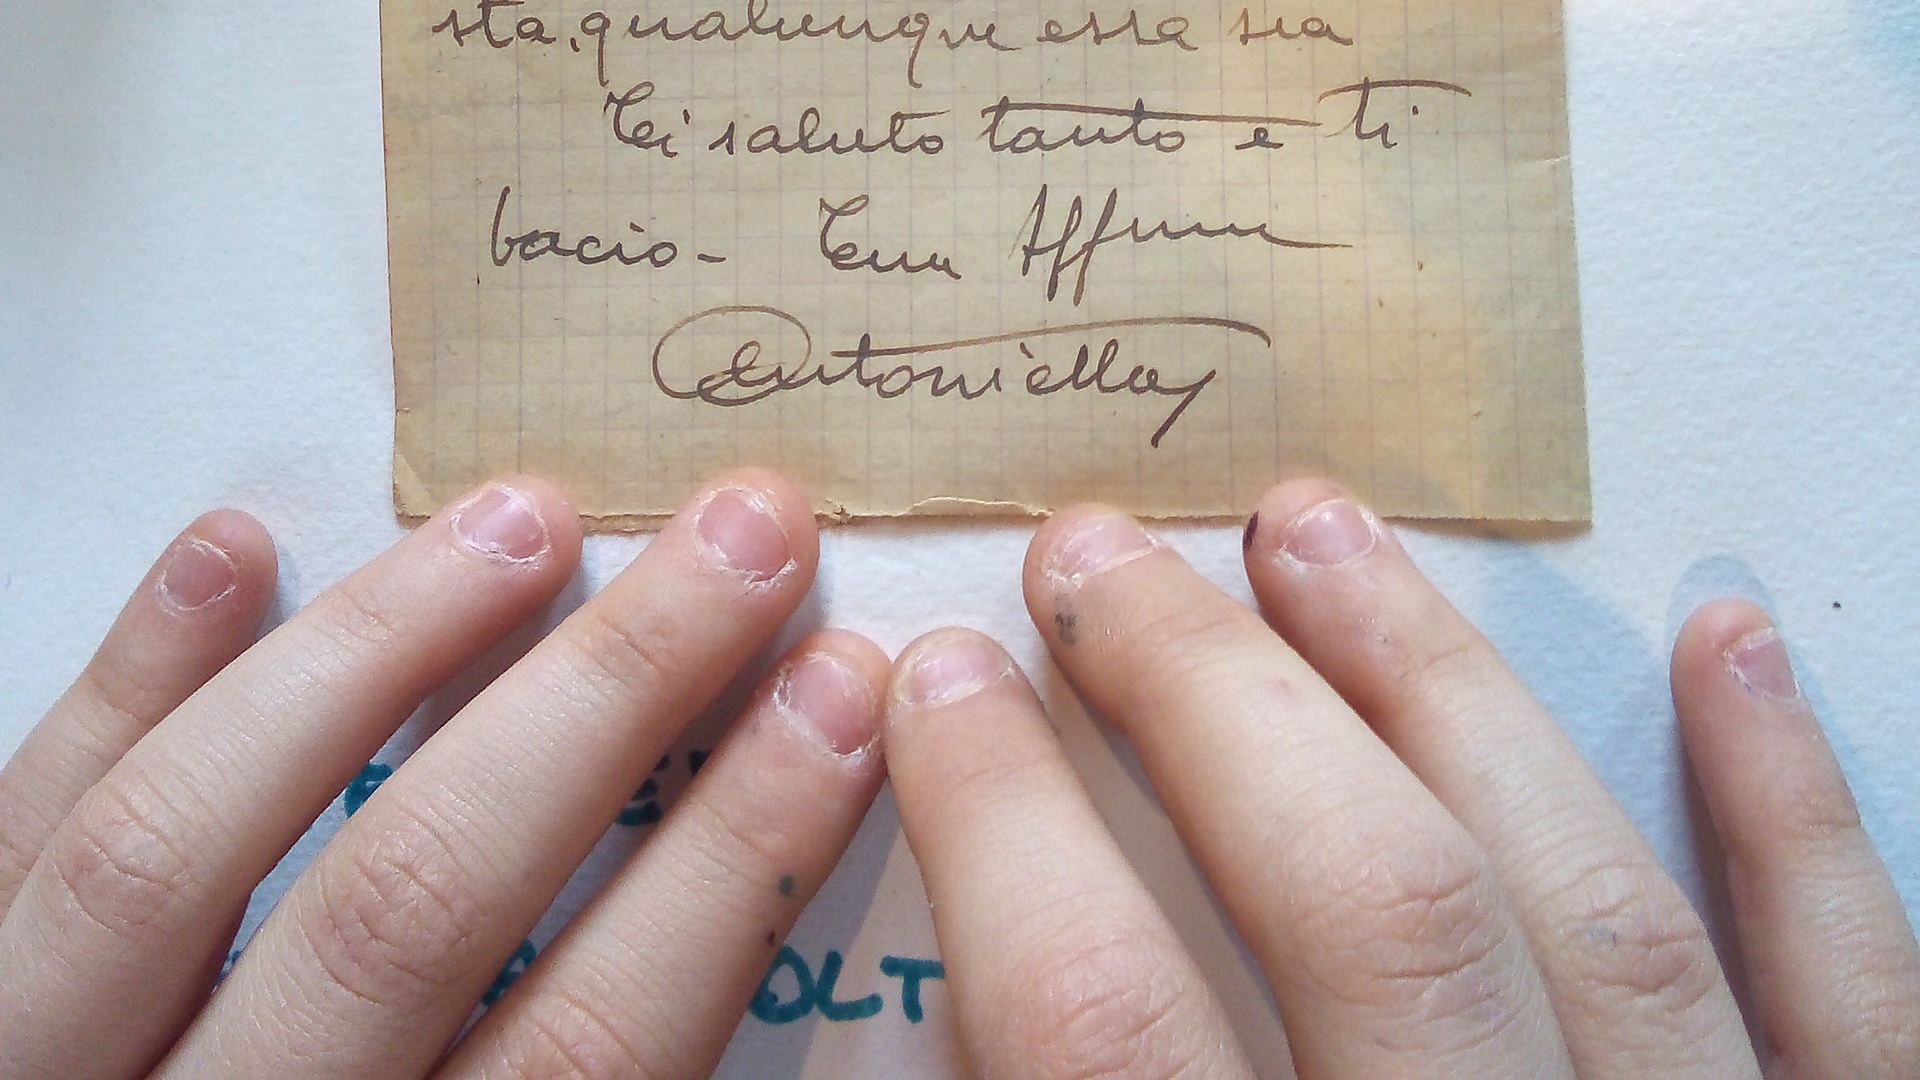 sta, qualunque essa sia
Ti saluto tanto e ti
bacio - Tua Affma
Antoniella
OLT